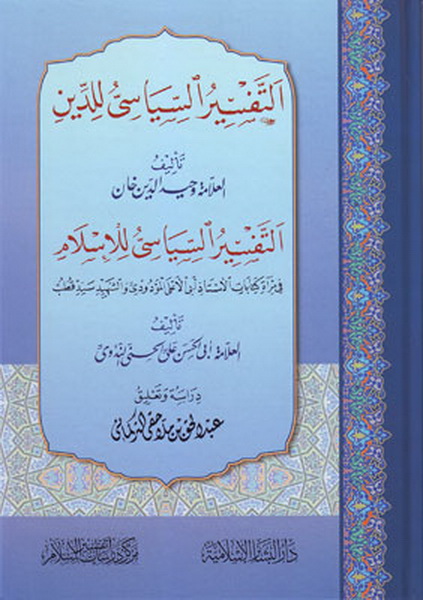 التَّفْسِيْرُ السِّيَاسِيُّ لِلدِّينِ
تَأليْفُ
العلامة وحيد الدين خان
التَّفْسِيْرُ السِّيَاسِيُّ لِلْإِسْلَامِ
في مرآة كتابات الأستاذ أبي الأعلى المودودي والشهيد سيد قطب
تَأليْفُ
العلامة أبي الحسن علي الحسني الندوي
دراسة وتعليق
عبد الحق بن ملا حقي التركماني
دار البشائر الإسلامية
مركز دراسات تفسير الإسلام